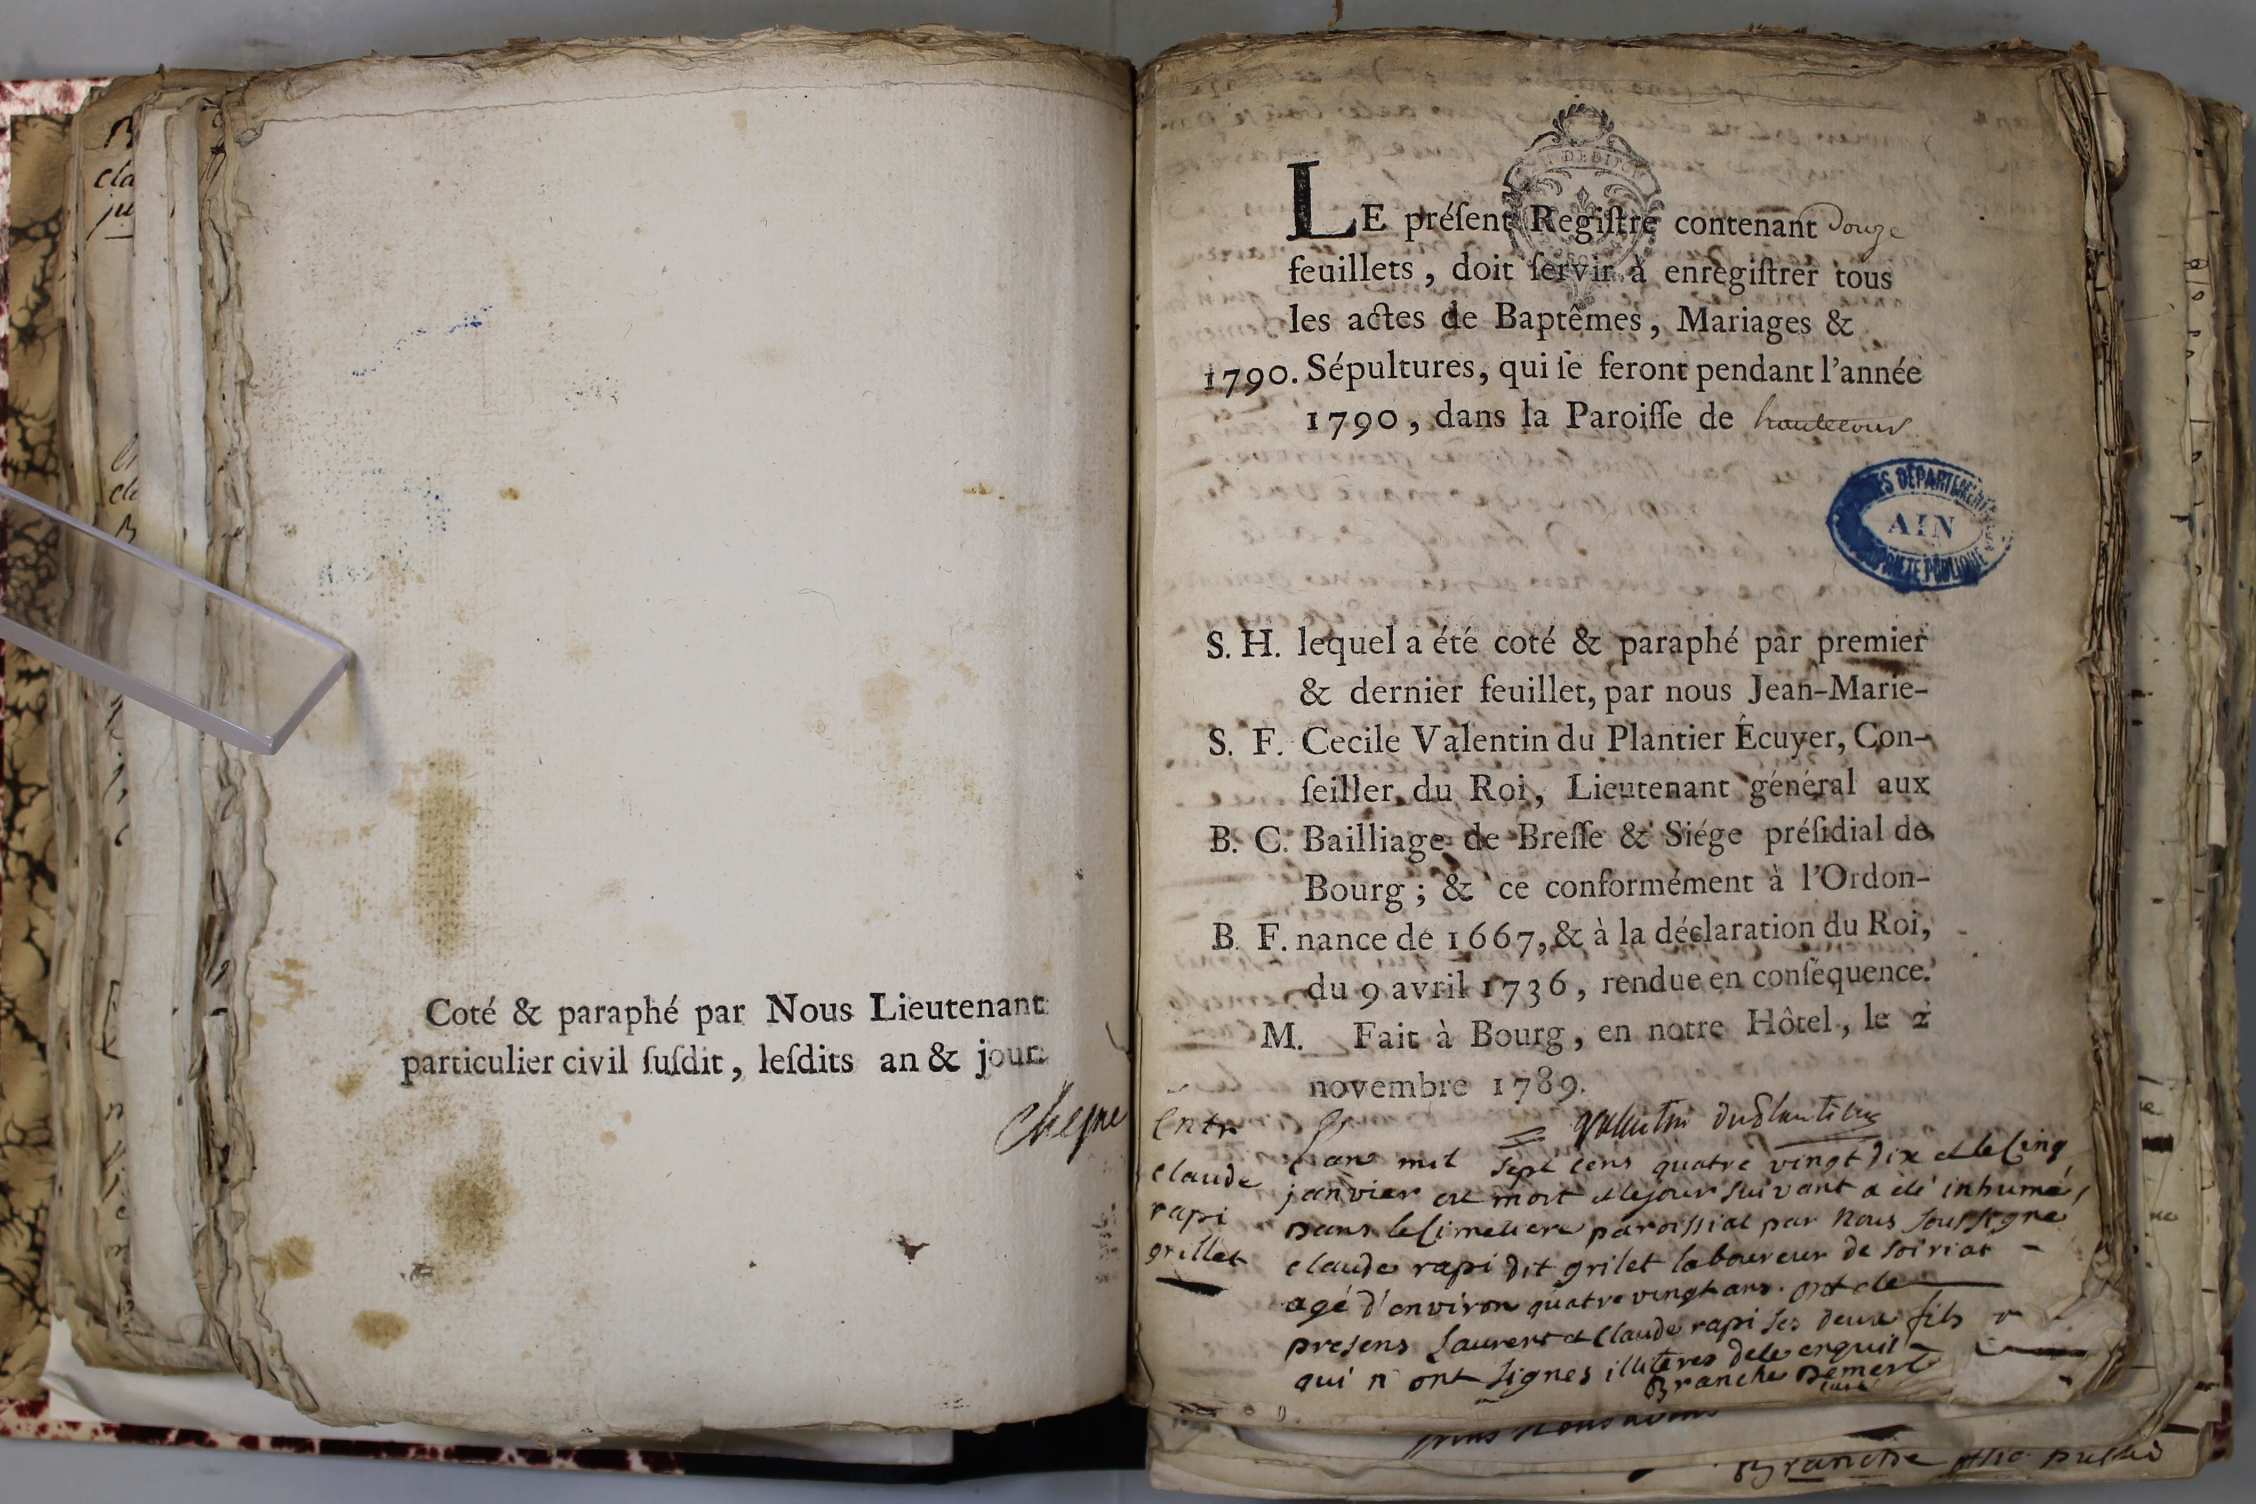 cla
ju
Coté & paraphé par Nous Lieutenant
particulier civil ſuſdit, leſdits an & jour.
LE préſent Regiſtre contenant Douze
feuillets, doit ſervir à enregiſtrer tous
les actes de Baptêmes, Mariages &
1790. Sépultures, qui ſe feront pendant l'année
1790, dans la Paroiſſe de hautecour
ES DÉPARTEMENTALES
AIN
PROPRIÉTÉ PUBLIQUE
S. H. lequel a été coté & paraphé par premier
& dernier feuillet, par nous Jean-Marie-
S. F. Cecile Valentin du Plantier Écuyer, Con-
ſeiller du Roi, Lieutenant général aux
B. C. Bailliage de Breſſe & Siége préſidial de
Bourg; & ce conformément à l'Ordon-
B. F. nance de 1667, & à la déclaration du Roi,
du 9 avril 1736, rendue en conſéquence.
M. Fait à Bourg, en notre Hôtel, le 2
novembre 1789.
Valentin duPlantier
Entr
claude
rapi
grillet
L'an mil sept cens quatre vingt dix et le cinq
janvier est mort et le jour suivant a été inhumé
Dans le cimetiere paroissial par Nous soussigné
claude rapi dit grilet laboureur de soiriat
agé d'environ quatre vingt ans. ont ete
presens Laurent et Claude rapi ses deux fils
qui n'ont signes illiteres de le enquis
Branche Demert
curé
Nous avons
Branche